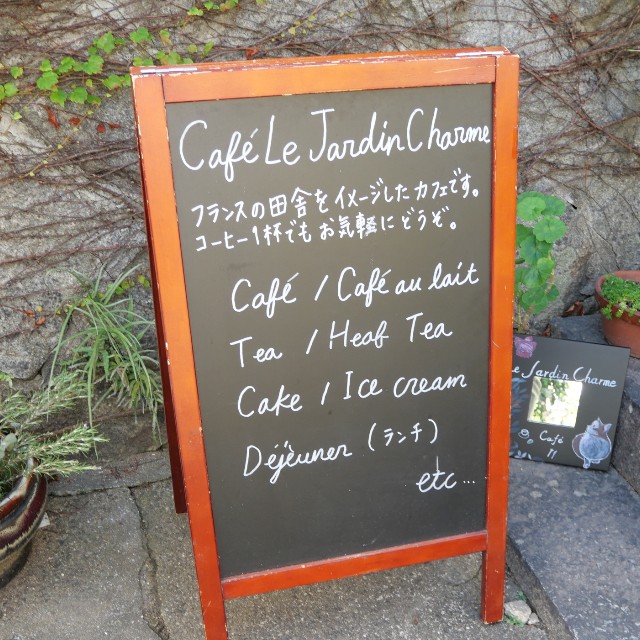 Café Le Jardin Charme
フランスの田舎をイメージしたカフェです。
コーヒー1杯でもお気軽にどうぞ。
Café / Café au lait
Tea / Heab Tea
Cake / Ice cream
Déjeuner (ランチ)
etc...
Le Jardin Charme
Café